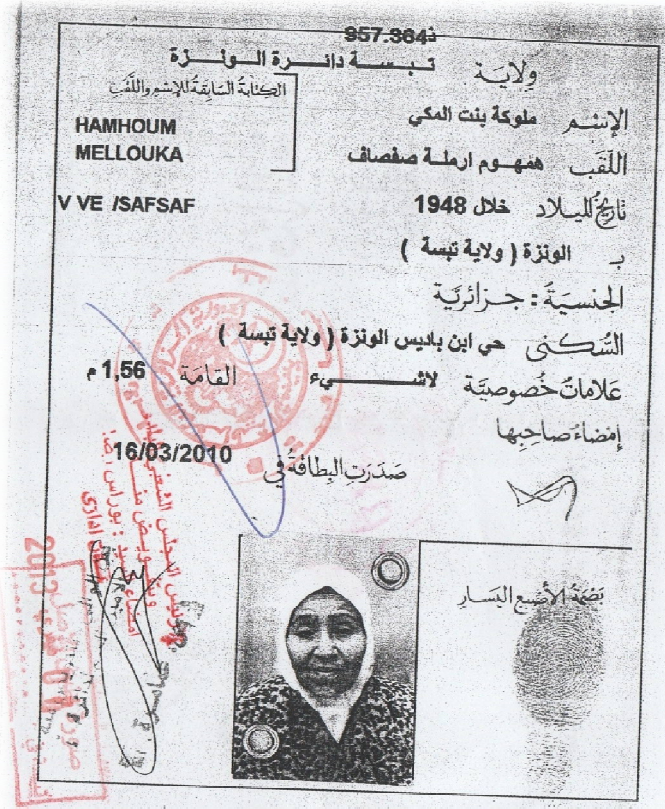 957.364ذ
ولاية تبسة دائرة الونزة
الكتابة السابقة للإسم واللقب
الإسم ملوكة بنت المكي
HAMHOUM
اللقب همهوم ارملة صفصاف
MELLOUKA
تاريخ الميلاد خلال 1948
V VE /SAFSAF
بـ الونزة ( ولاية تبسة )
الجنسية : جزائرية
السكنى حي ابن باديس الونزة ( ولاية تبسة )
علامات خصوصية لاشيء القامة 1,56 م
إمضاء صاحبها
صدرت البطاقة في 16/03/2010
بصمة الأصبع اليسار